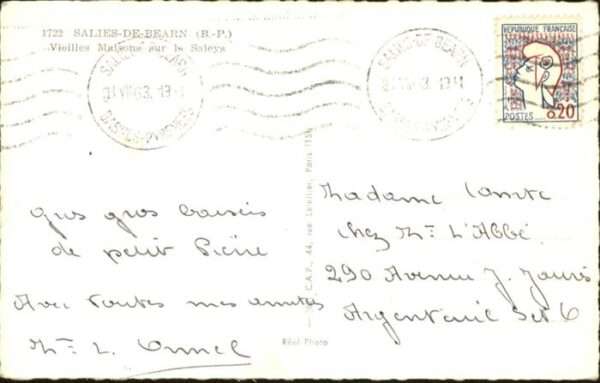 1722 SALIES-DE-BEARN (B.-P.)
Vieilles Maisons sur le Saleys
SALIES-DE-BEARN
BASSES-PYRENEES
REPUBLIQUE FRANÇAISE
POSTES 0,20
gros baisers
de petit Pierre
Avec toutes mes amitiés
Mme L.
C.A.P., 44, rue Letellier, Paris 15e
Réel Photo
Madame Comte
chez Mr L'Abbé
290 Avenue J. Jaurès
Argenteuil Set O